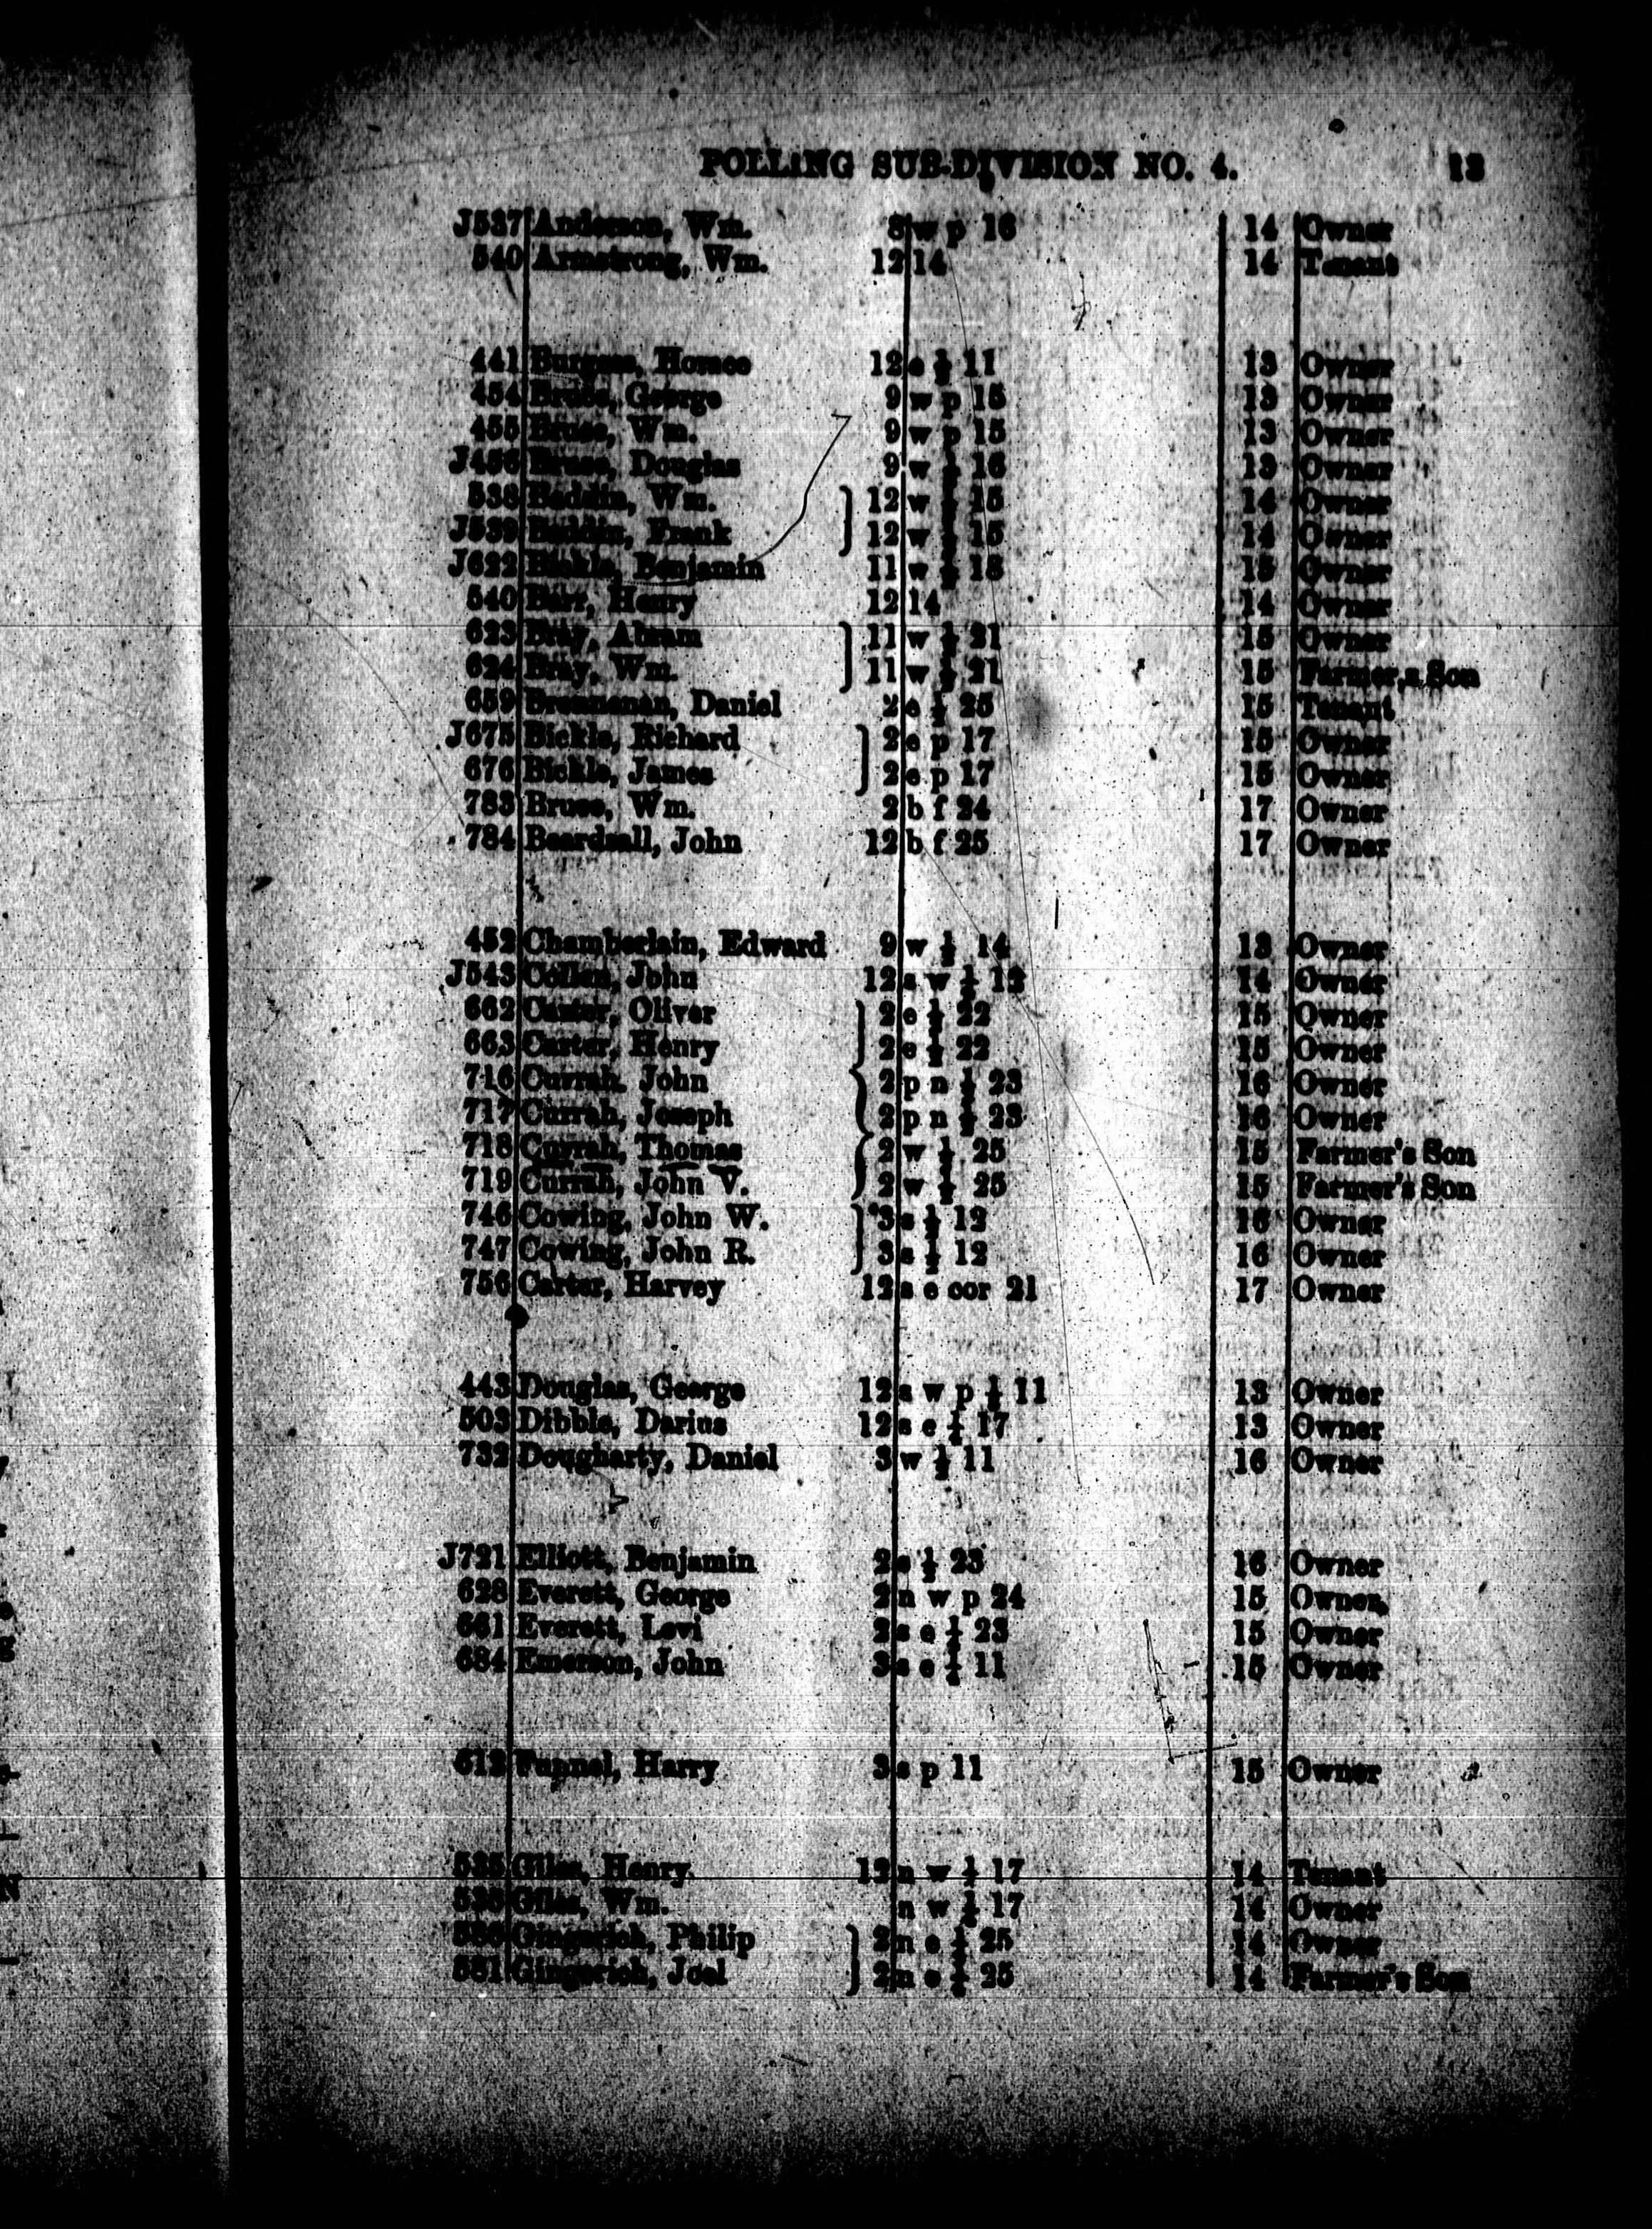 POLLING SUB-DIVISION NO. 4. 13
J537 Anderson, Wm. 8 w p 16 14 Owner
540 Armstrong, Wm. 12 14 14 Tenant
441 Burgess, Horace 12 e ½ 11 13 Owner
454 Bruce, George 9 w p 15 13 Owner
455 Bruce, Wm. 9 w p 15 13 Owner
J456 Bruce, Douglas 9 w ½ 16 13 Owner
538 Beddin, Wm. 12 w ½ 15 14 Owner
J539 Beddin, Frank 12 w ½ 15 14 Owner
J622 Bickle, Benjamin 11 w ½ 18 15 Owner
540 Barr, Henry 12 14 14 Owner
623 Bray, Abram 11 w ½ 21 15 Owner
624 Bray, Wm. 11 w ½ 21 15 Farmer,s Son
659 Brennenan, Daniel 2 e ½ 25 15 Tenant
J675 Bickle, Richard 2 e p 17 15 Owner
676 Bickle, James 2 e p 17 15 Owner
783 Bruce, Wm. 2 b f 24 17 Owner
784 Beardsall, John 12 b f 25 17 Owner
452 Chamberlain, Edward 9 w ½ 14 13 Owner
J543 John 12 s w ½ 13 14 Owner
662 Carter, Oliver 2 e ½ 22 15 Owner
663 Carter, Henry 2 e ½ 22 15 Owner
716 Currah, John 2 p n ½ 23 16 Owner
717 Currah, Joseph 2 p n ½ 23 16 Owner
718 Currah, Thomas 2 w ½ 25 15 Farmer's Son
719 Currah, John V. 2 w ½ 25 15 Farmer's Son
746 Cowing, John W. 3 s ½ 12 16 Owner
747 Cowing, John R. 3 s ½ 12 16 Owner
756 Carter, Harvey 12 s e cor 21 17 Owner
443 Douglas, George 12 s w p ½ 11 13 Owner
503 Dibble, Darius 12 s e ¼ 17 13 Owner
732 Dougharty, Daniel 3 w ½ 11 16 Owner
J721 Elliott, Benjamin 2 s ½ 23 16 Owner
628 Everett, George 2 n w p 24 15 Owner
661 Everett, Levi 2 s e ¼ 23 15 Owner
684 Emerson, John 3 s e ¼ 11 15 Owner
612 Funnel, Harry 3 s p 11 15 Owner
535 Giles, Henry 12 n w ¼ 17 14 Tenant
536 Giles, Wm. n w ¼ 17 14 Owner
580 Gingerich, Philip 2 n e ¼ 25 14 Owner
581 Gingerich, Joel 2 n e ¼ 25 14 Farmer's Son